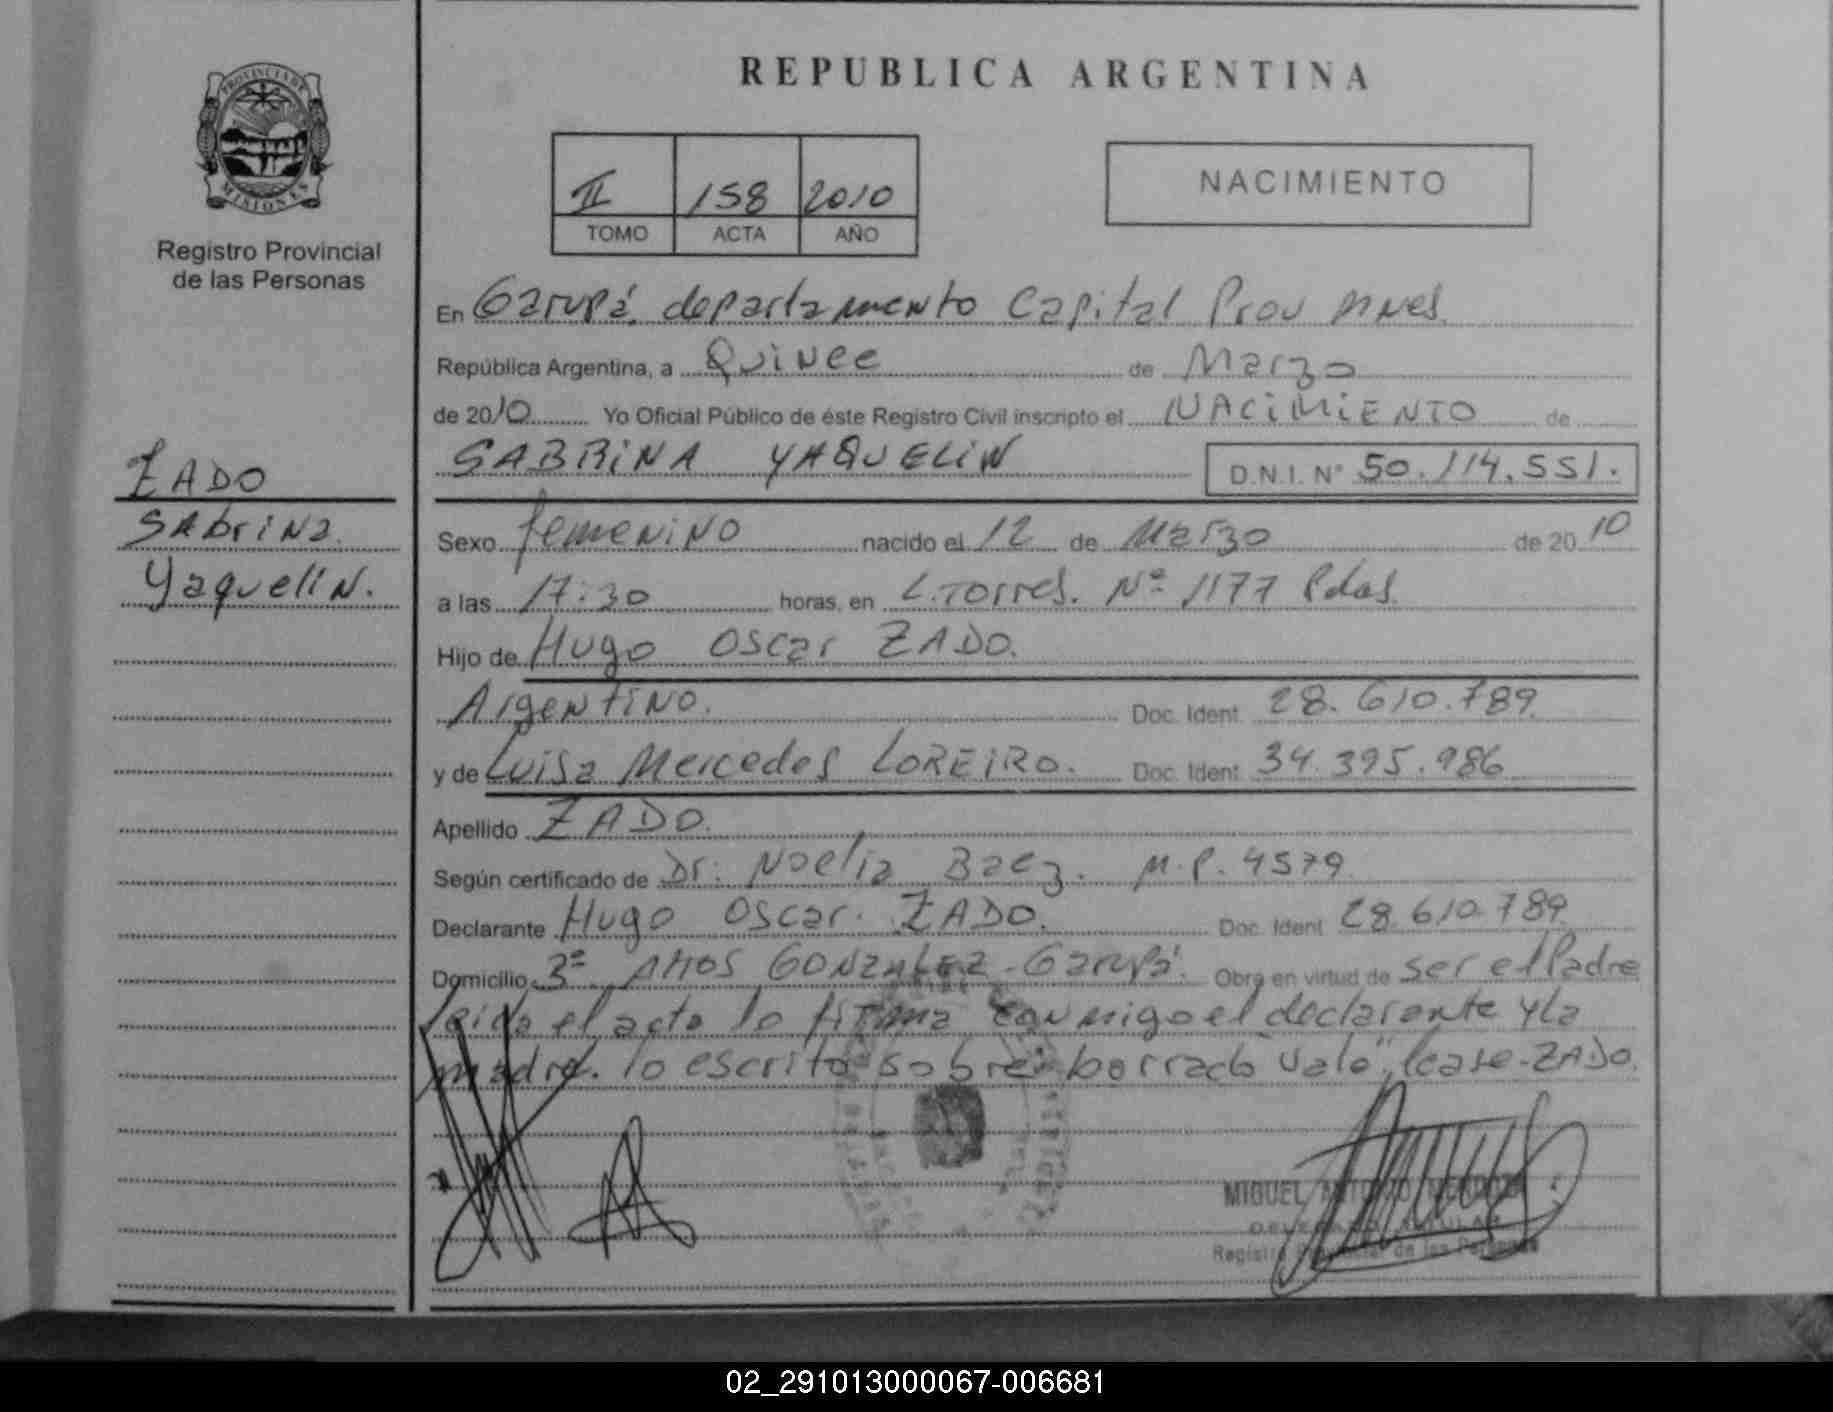 PROVINCIA DE
MISIONES
Registro Provincial
de las Personas
ZADO
Sabrina
Yaquelin.
REPUBLICA ARGENTINA
II 158 2010
TOMO ACTA AÑO
NACIMIENTO
En Garupá, departamento Capital Prov Mnes.
República Argentina, a Quince de Marzo
de 2010 Yo Oficial Público de éste Registro Civil inscripto el NACIMIENTO de
SABRINA YAQUELIN D.N.I. N° 50.114.551.
Sexo femenino nacido el 12 de Marzo de 2010
a las 17:30 horas, en L. Torres. Nº 1177 Pdas.
Hijo de Hugo Oscar ZADO.
Argentino. Doc. Ident 28.610.789
y de Luisa Mercedes LOREIRO. Doc. Ident 34.395.986
Apellido ZADO.
Según certificado de Dr: Noelia Baez. M.P. 4579
Declarante Hugo Oscar ZADO. Doc. Ident 28.610.789
Domicilio 3º AMOS GONZALEZ - Garupá. Obra en virtud de ser el Padre
leida el acta lo firma conmigo el declarante y la
madre. lo escrito sobre borrado vale, lease-ZADO.
MIGUEL
Registro Provincial de las Personas
02_291013000067-006681